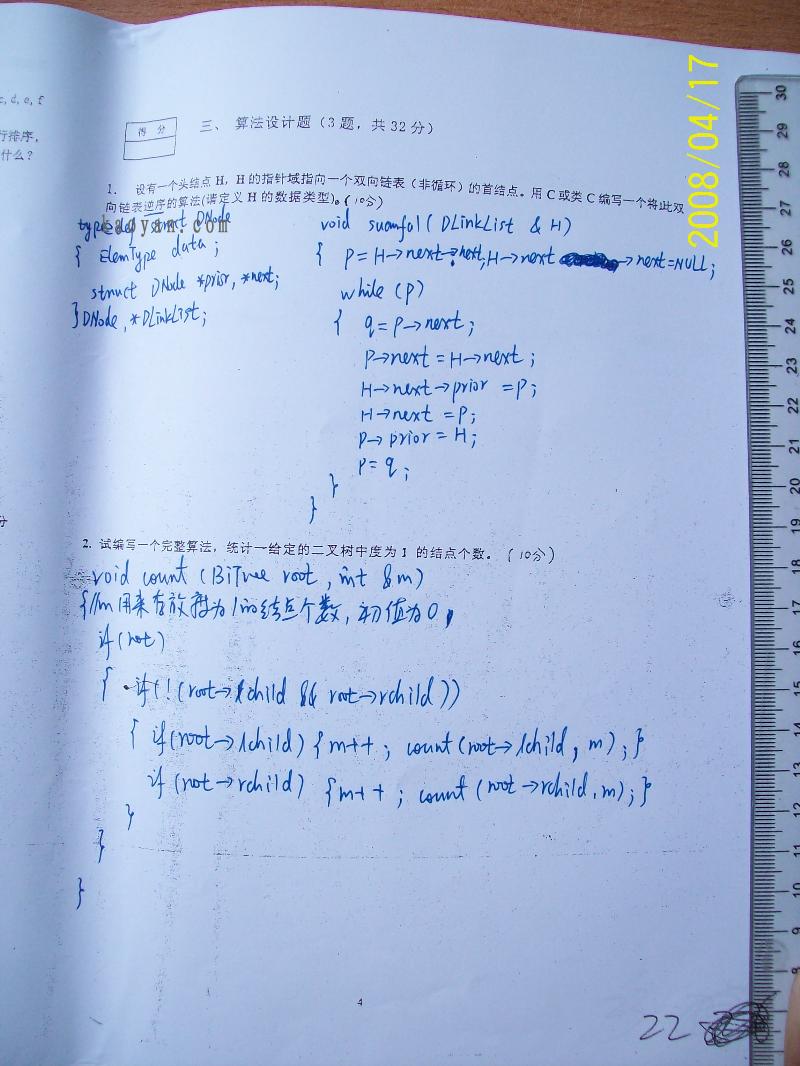 c, d, e, f
行排序,
什么?
分
得 分
三、 算法设计题 (3 题, 共 32 分)
1. 设有一个头结点 H, H 的指针域指向一个双向链表 (非循环) 的首结点。用 C 或类 C 编写一个将此双
向链表逆序的算法(请定义 H 的数据类型)。(10分)
kaoyan.com
typedef struct DNode
{ ElemType data;
struct DNode *prior, *next;
}DNode, *DLinkList;
void suanfa1( DLinkList & H)
{ P=H→next→next; H→next →next=NULL;
while (P)
{ q=P→next;
P→next=H→next;
H→next→prior =P;
H→next =P;
P→prior=H;
P=q;
}
}
2. 试编写一个完整算法, 统计一给定的二叉树中度为 1 的结点个数。(10分)
void count (BiTree root, int &m)
{//m用来存放度为1的结点个数, 初值为0,
if(root)
{ if(!(root→lchild && root→rchild))
{ if(root→lchild) {m++; count(root→lchild, m);}
if(root→rchild) {m++; count(root→rchild, m);}
}
}
}
4
22
2008/04/17
30
29
28
27
26
25
24
23
22
21
20
19
18
17
16
15
14
13
12
11
10
9
8